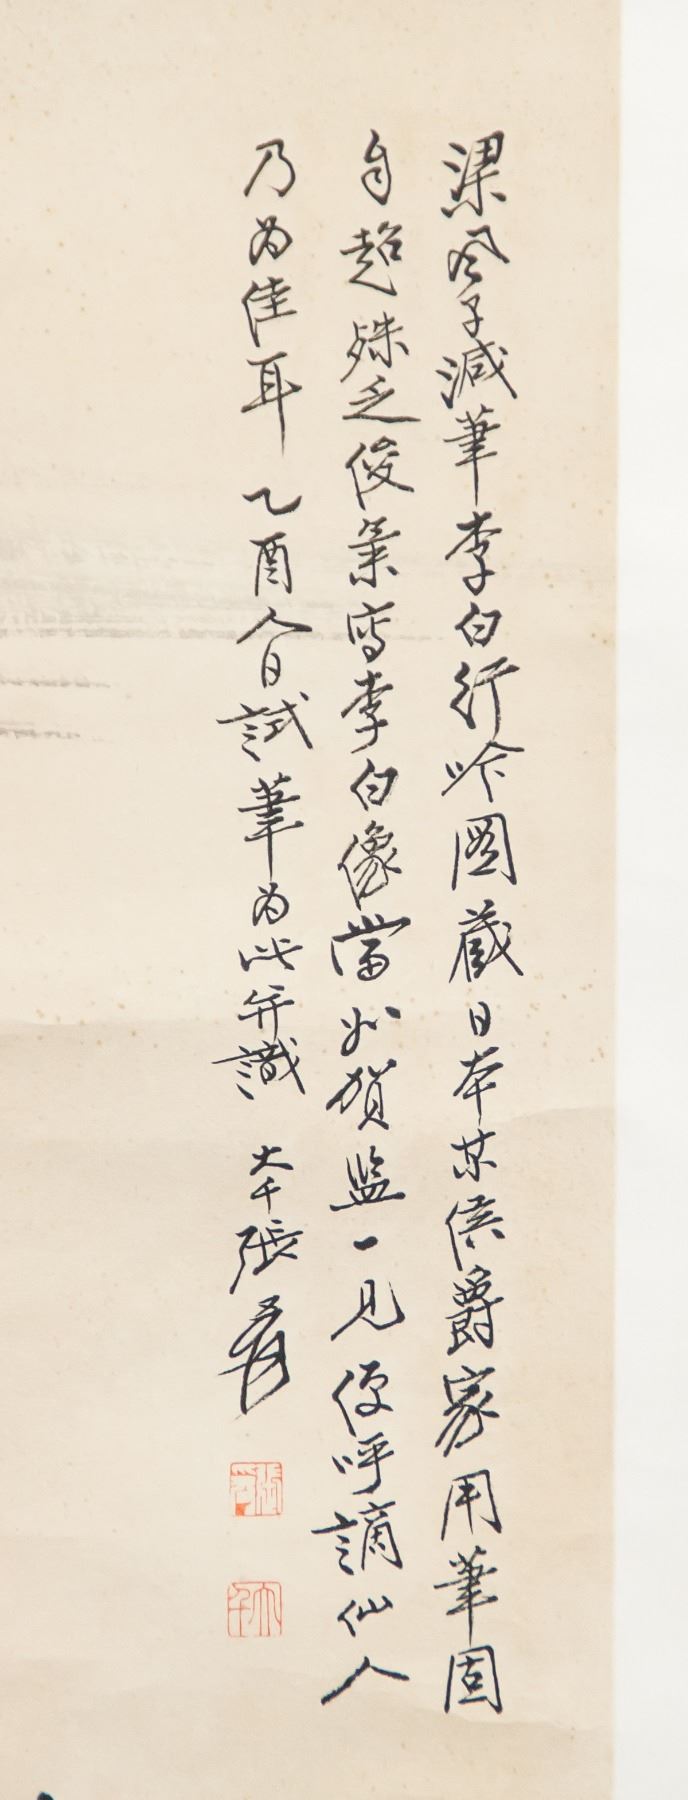 梁風子減筆李白行吟图藏日本某侯爵家用筆固
自超殊乏俊氣寫李白像當如賀監一見便呼謫仙人
乃为佳耳 乙酉人日試筆为此并識 大千張爰
張爰
大千